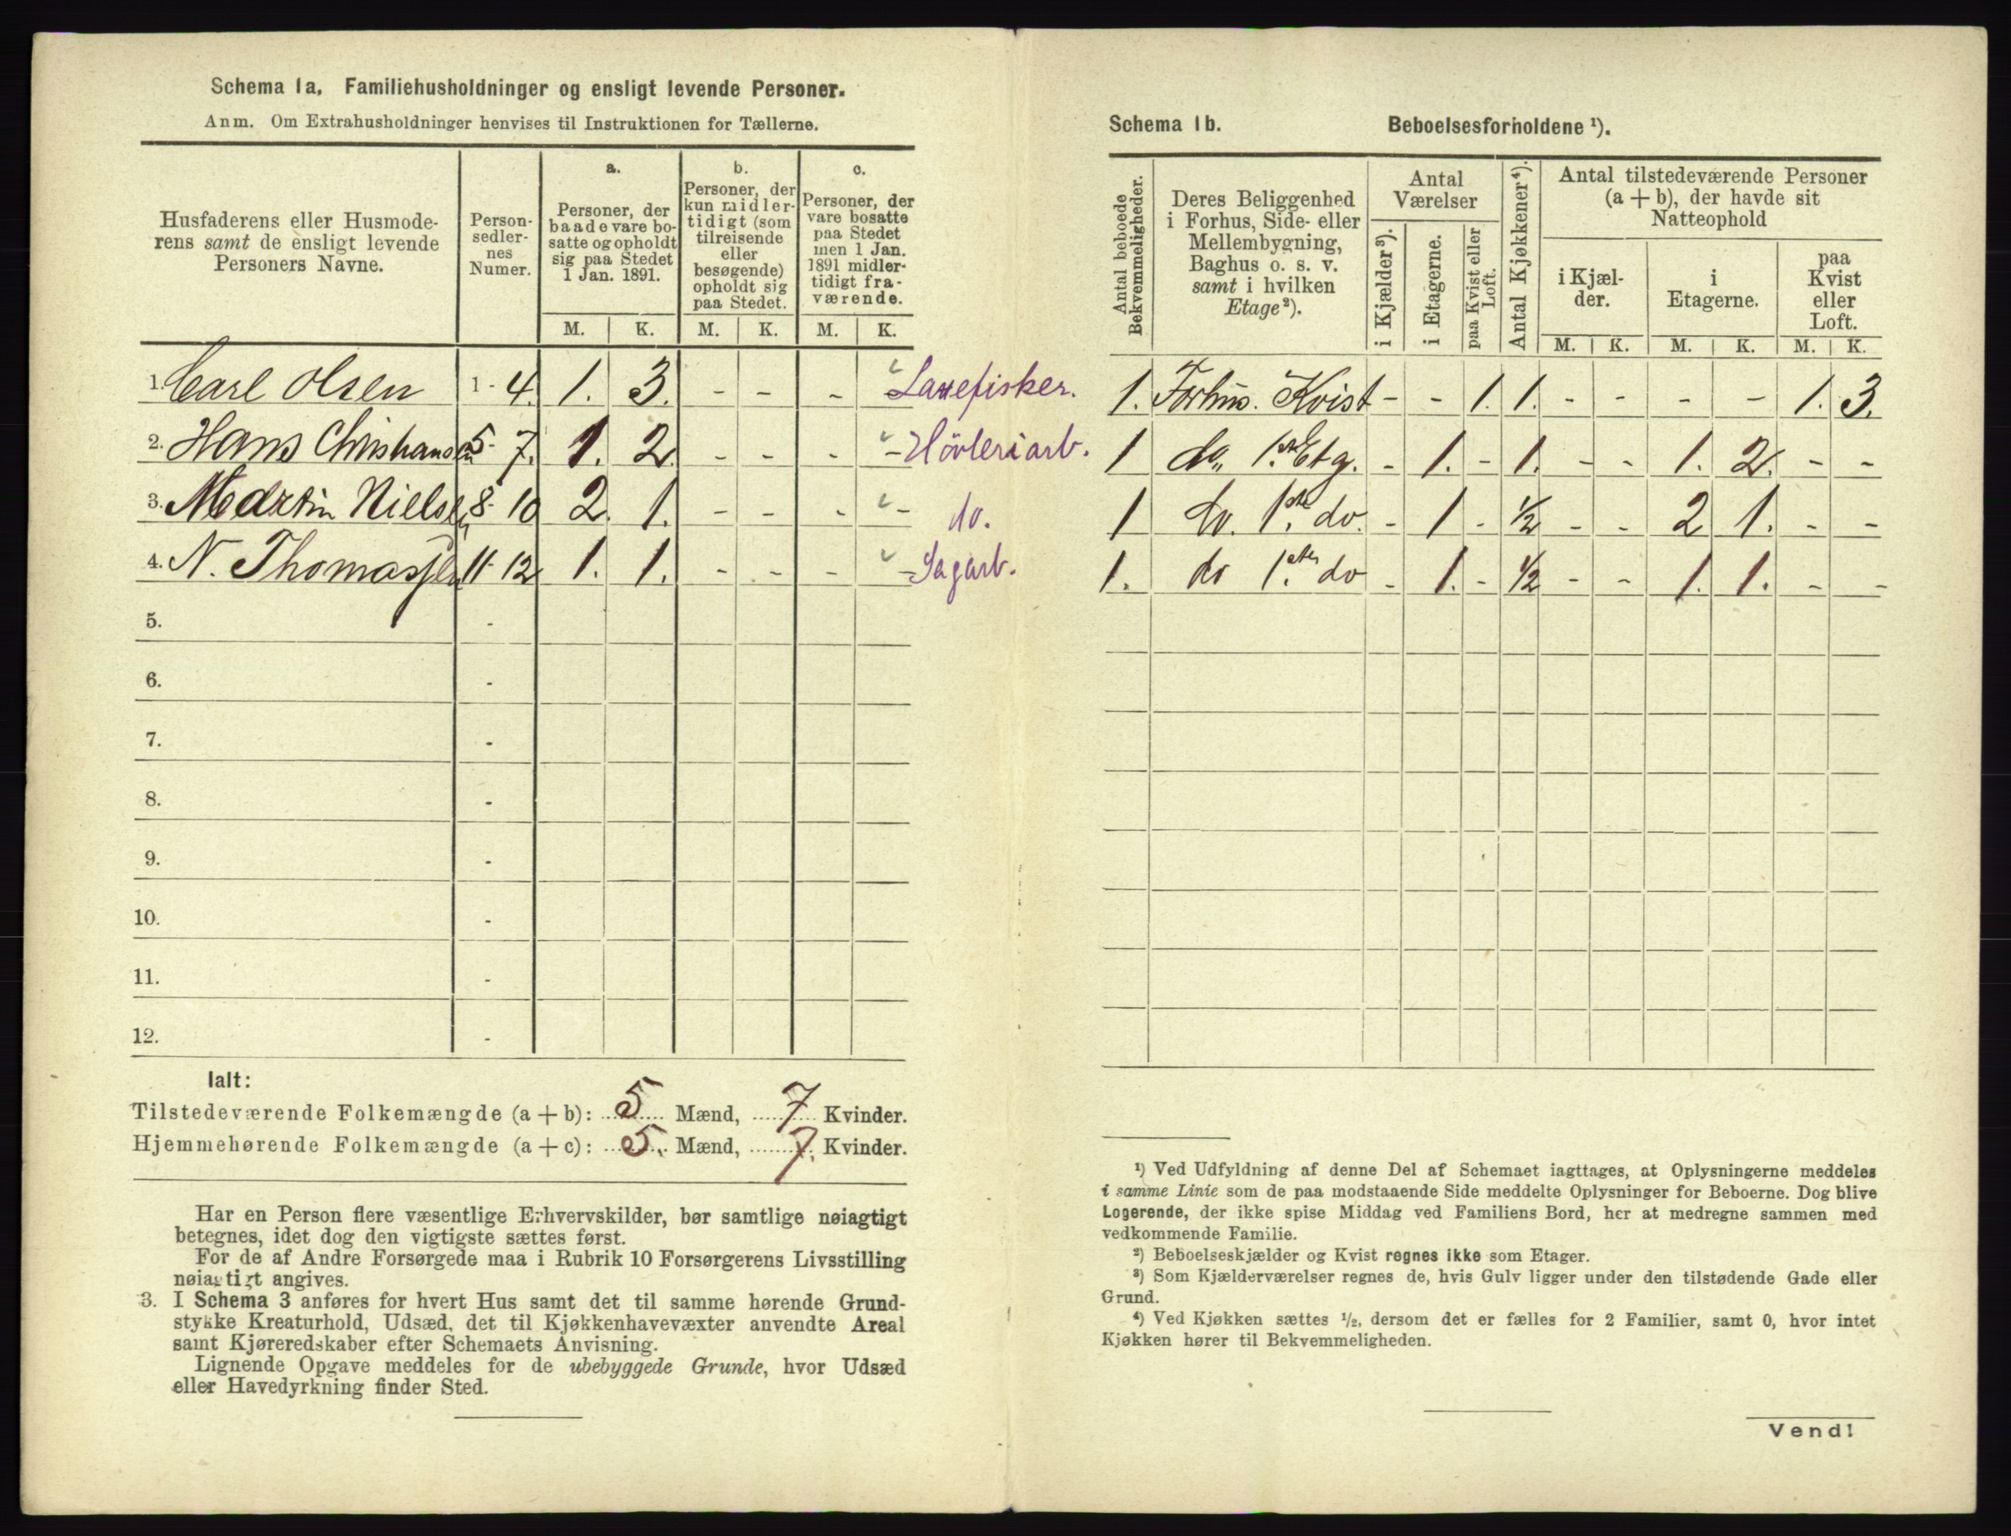 Schema 1a. Familiehusholdninger og ensligt levende Personer.
Anm. Om Extrahusholdninger henvises til Instruktionen for Tællerne.
Husfaderens eller Husmoderens samt de ensligt levende Personers Navne.
Personsedlernes Numer.
a. Personer, der baade vare bosatte og opholdt sig paa Stedet 1 Jan. 1891.
b. Personer, der kun midlertidigt (som tilreisende eller besøgende) opholdt sig paa Stedet.
c. Personer, der vare bosatte paa Stedet men 1 Jan. 1891 midlertidigt fraværende.
M. K. M. K. M. K.
1. Carl Olsen 1 - 4. 1. 3. - - -
2. Hans Christiansen 5 - 7. 1. 2. - - - - Høvleriarb.
3. Martin Nielsen 8 - 10 2. 1. - - - - do.
4. N. Thomassen 11 - 12 1. 1. - - - - Sagarb.
5. -
6. -
7. -
8. -
9. -
10. -
11. -
12. -
Ialt:
Tilstedeværende Folkemængde (a + b): 5 Mænd, 7 Kvinder.
Hjemmehørende Folkemængde (a + c): 5. Mænd, 7. Kvinder.
Har en Person flere væsentlige Erhvervskilder, bør samtlige nøiagtigt
betegnes, idet dog den vigtigste sættes først.
For de af Andre Forsørgede maa i Rubrik 10 Forsørgerens Livsstilling
nøiagtigt angives.
3. I Schema 3 anføres for hvert Hus samt det til samme hørende Grund-
stykke Kreaturhold, Udsæd, det til Kjøkkenhavevæxter anvendte Areal
samt Kjøreredskaber efter Schemaets Anvisning.
Lignende Opgave meddeles for de ubebyggede Grunde, hvor Udsæd
eller Havedyrkning finder Sted.
Schema 1b. Beboelsesforholdene ¹).
Antal beboede Bekvemmeligheder.
Deres Beliggenhed i Forhus, Side- eller Mellembygning, Baghus o. s. v. samt i hvilken Etage²).
Antal Værelser
i Kjælder³).
i Etagerne.
paa Kvist eller Loft.
Antal Kjøkkener⁴).
Antal tilstedeværende Personer (a + b), der havde sit Natteophold
i Kjælder.
i Etagerne.
paa Kvist eller Loft.
M. K. M. K. M. K.
1. Forhus. Kvist - - 1. 1. - - - - 1. 3.
1 do. 1ste Etg. - 1. - 1. - - 1. 2. - -
1 do. 1ste do. - 1 - ½ - - 2 1. - -
1. do 1ste do - 1. - ½ - - 1. 1. - -
¹) Ved Udfyldning af denne Del af Schemaet iagttages, at Oplysningerne meddeles
i samme Linie som de paa modstaaende Side meddelte Oplysninger for Beboerne. Dog blive
Logerende, der ikke spise Middag ved Familiens Bord, her at medregne sammen med
vedkommende Familie.
²) Beboelseskjælder og Kvist regnes ikke som Etager.
³) Som Kjælderværelser regnes de, hvis Gulv ligger under den tilstødende Gade eller
Grund.
⁴) Ved Kjøkken sættes ½, dersom det er fælles for 2 Familier, samt 0, hvor intet
Kjøkken hører til Bekvemmeligheden.
Vend!